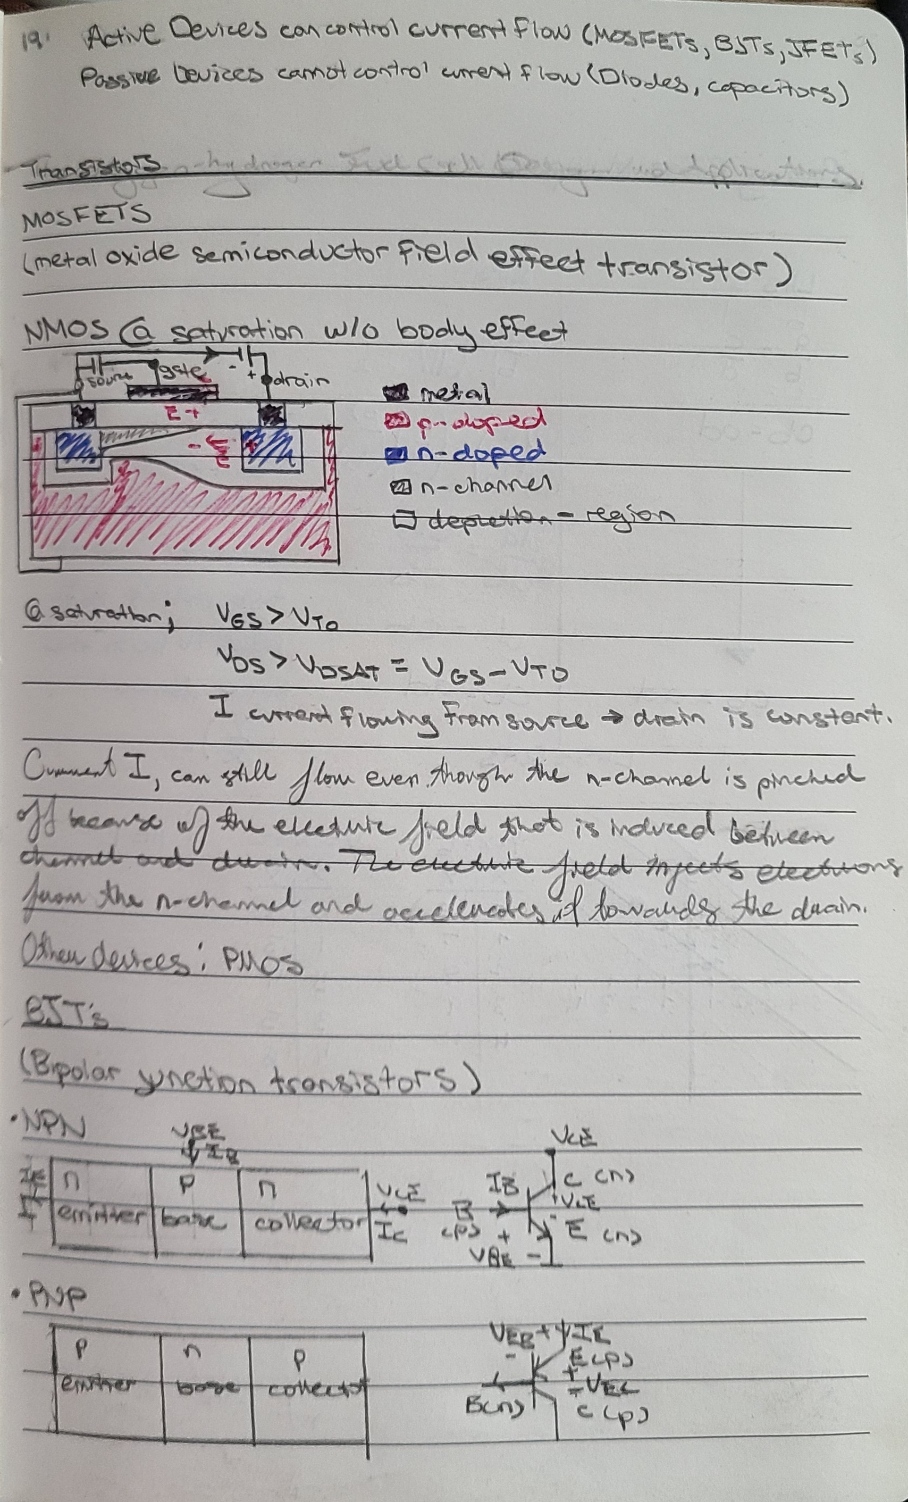 19. Active Devices can control current flow (MOSFETs, BJTs, JFETs)
Passive Devices cannot control current flow (Diodes, capacitors)
Transistors
MOSFETS
(metal oxide semiconductor field effect transistor)
NMOS @ saturation w/o body effect
source gate - + drain
metal
E +
p-doped
- E
n-doped
n-channel
depletion-region
@ saturation; VGS > VTO
VDS > VDSAT = VGS - VTO
I current flowing from source → drain is constant.
Current I, can still flow even though the n-channel is pinched
off because of the electric field that is induced between
channel and drain. The electric field injects electrons
from the n-channel and accelerates it towards the drain.
Other devices: PMOS
BJT's
(Bipolar junction transistors)
• NPN
VBE
IB
IE n p n VCE
emitter base collector IC
VCE
IB C (n)
B VCE
(p) + - E (n)
VBE -
• PNP
p n p
emitter base collector
VEB + IE
- E (p)
+
B(n) - VEC
C (p)